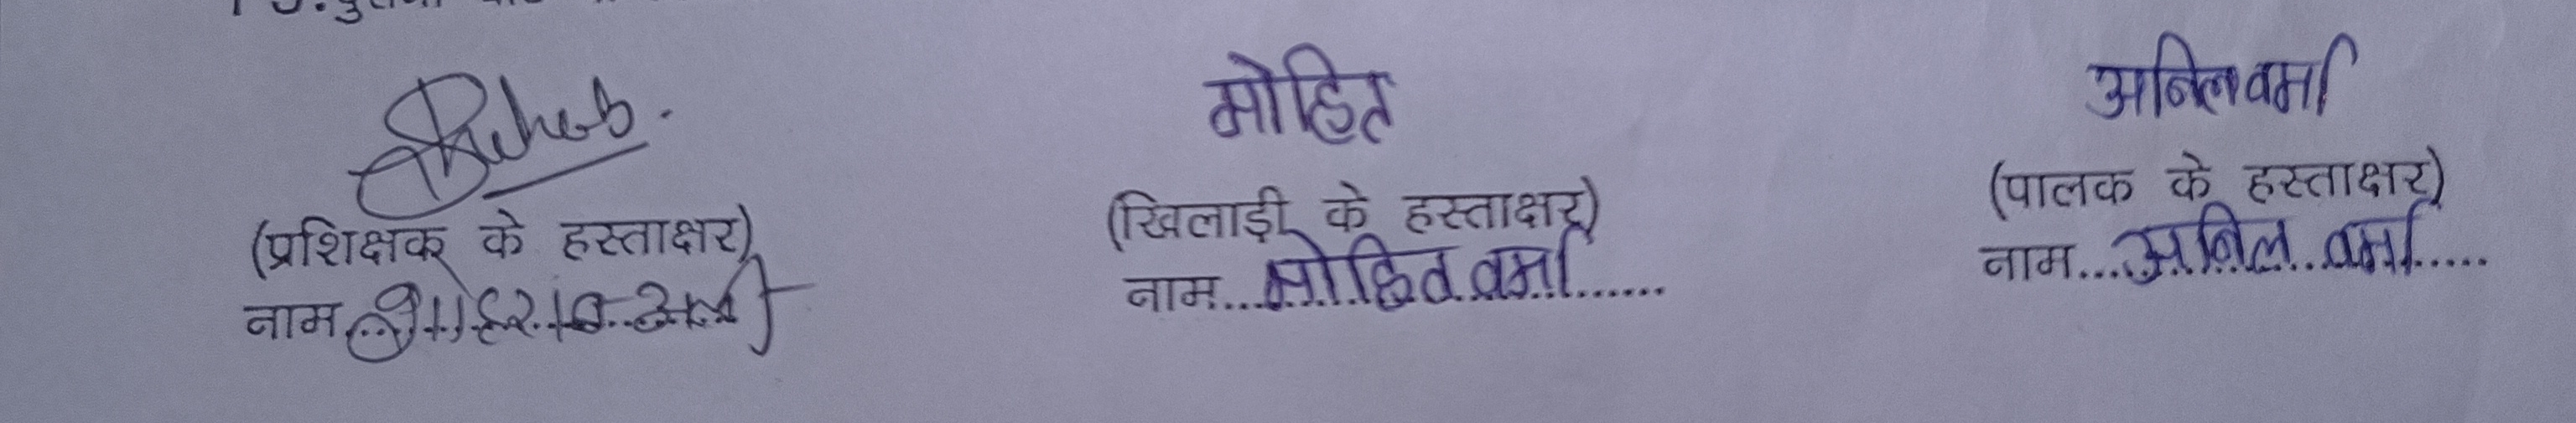 मोहित
अनिल वर्मा
(प्रशिक्षक के हस्ताक्षर)
(खिलाड़ी के हस्ताक्षर)
(पालक के हस्ताक्षर)
नाम
नाम...मोहित वर्मा......
नाम...अनिल वर्मा.....